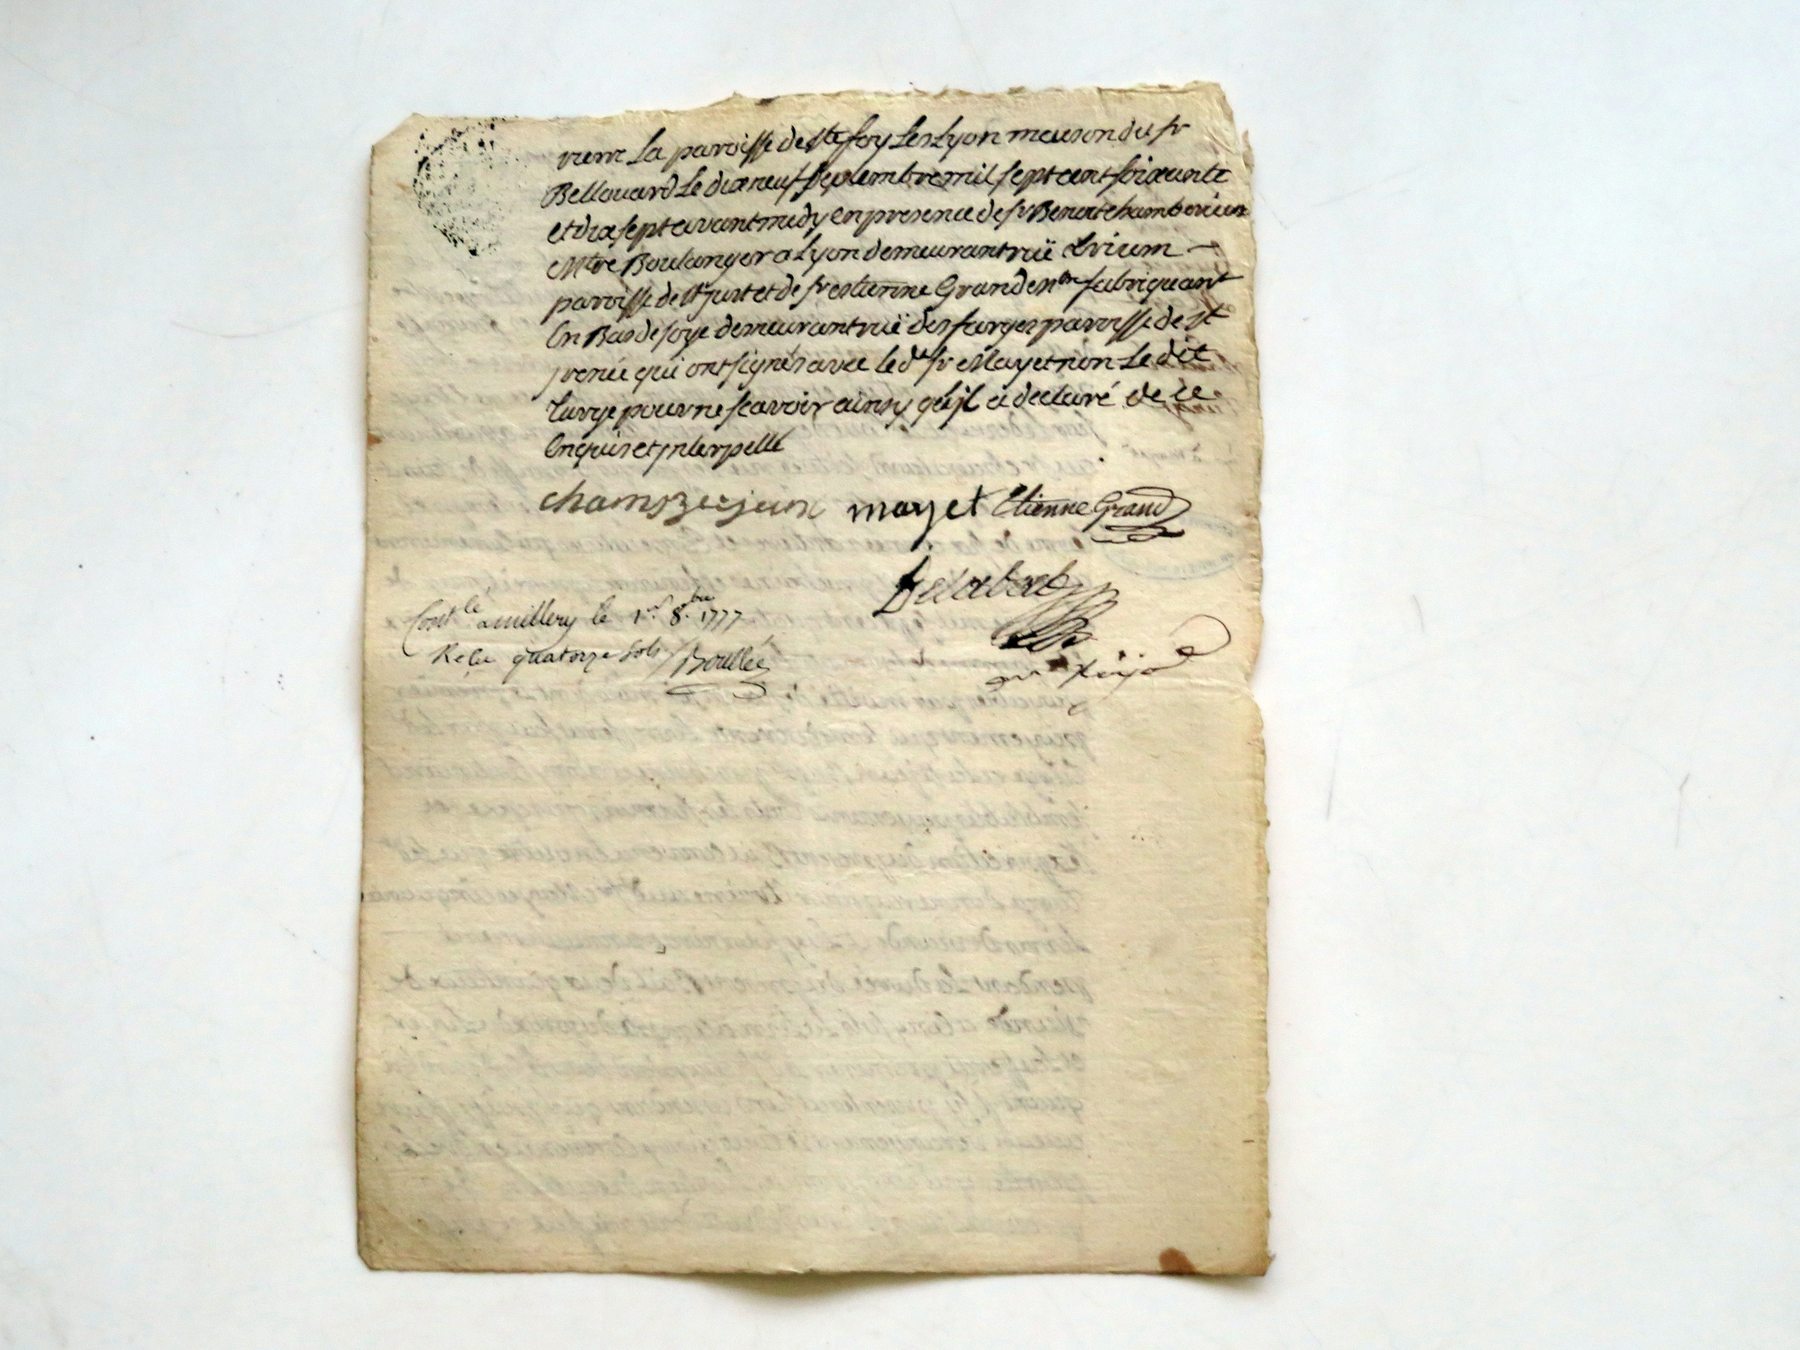 La paroisse de Ste foy Les Lyon maison du Sr
Bellouard Le dixneuf Septembre mil sept cent soixante
et dix sept avant midy en presence de Sr Benoit
Mtre Boulanger a Lyon demeurant ruë trium
paroisse de St Just et de Sr estienne Grand Mtre fabriquant
En Bas de soye demeurant ruë des farges paroisse de St
jrenée qui ont signés avec le dt Sr Mayet non Le dit
pour ne scavoir ainsy qu'jl a declaré de ce
Enquis et jnterpellé
mayet Etienne Grand
Contlé a millery le 1er 8bre 1777
Reçu quatorze sols Boullée